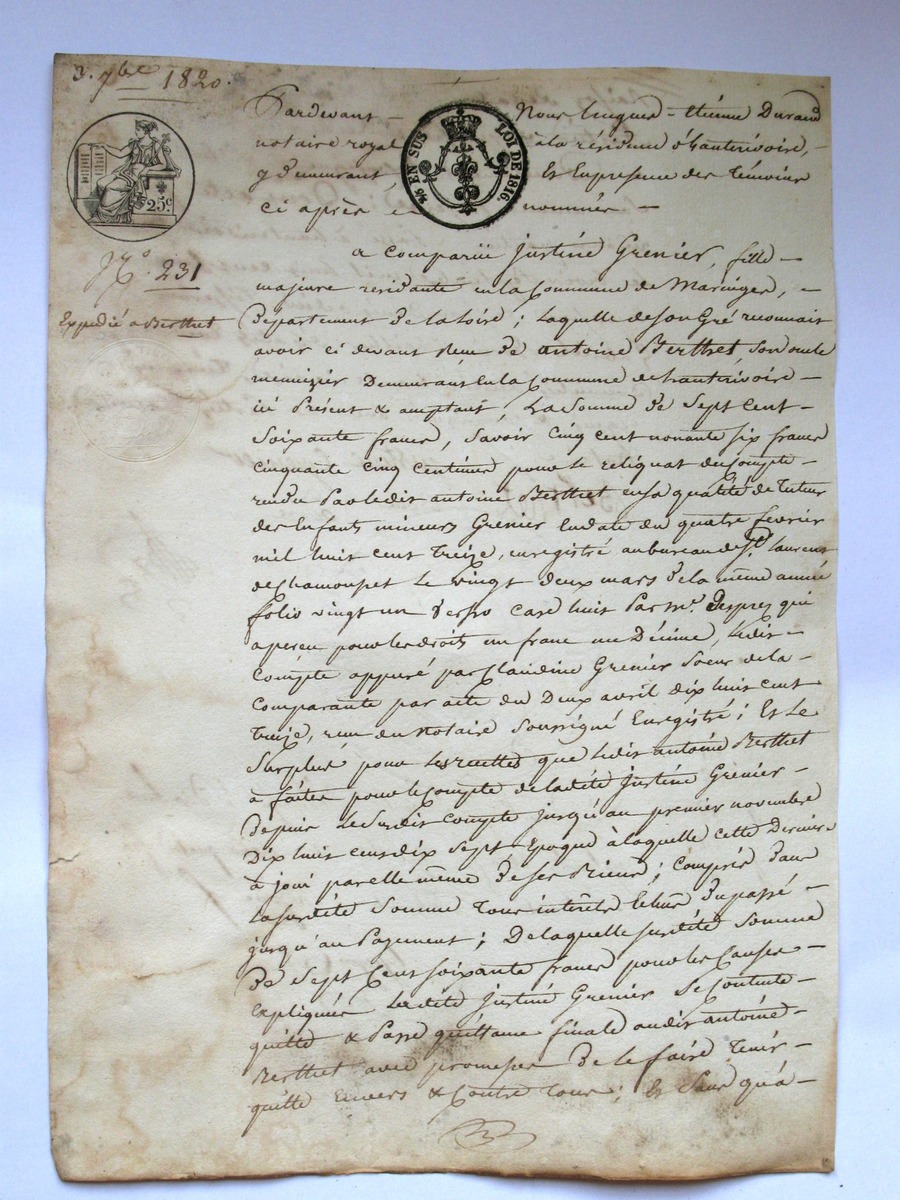 3. 7bre 1820.
Pardevant - Nous hugues-étienne Durand
notaire royal à la résidence d'hauterivoire,
y demeurant, Et En presence des Témoins
ci après nommés -
EN SUS
LOI DE 1816
25c.
N°. 231
Expédié a Berthet
a Comparüe Justine Grenier, fille -
majeure residante en la Commune de Maringes, -
Département De la Loire; Laquelle de son Gré reconnait
avoir ci devant Reçu De antoine Berthet, son oncle
meunier Demeurant En la Commune de hauterivoire -
ici Présent & acceptant, La Somme De Sept Cent -
Soixante francs, Savoir Cinq Cent nonante six francs
Cinquante Cinq Centimes pour le reliquat du Compte -
rendu Par ledit antoine Berthet en sa qualité De tuteur
des Enfants mineurs Grenier En date du quatre fevrier
mil huit cent treize, enregistré au bureau de St. Laurent
de Chamousset Le vingt deux mars De la même année
folio vingt un verso Case huit Par Mr. Desprez qui
a perçu pour les droits un franc un Décime, Ledit -
Compte appuré par Claudine Grenier Soeur de la -
Comparante par acte du Deux avril dix huit cent
treize, reçu du Notaire Soussigné Enregistré; Et Le
Surplus pour les recettes que Ledit antoine Berthet
a faites pour le Compte de ladite Justine Grenier -
Depuis Le Susdit Compte jusqu'au premier novembre
Dix huit cent dix Sept Epoque à laquelle cette Derniere
à joui par elle même De ses Biens; Compris Dans
La susdite Somme Tous intérêts Echus Du passé -
jusqu'au Payement; De laquelle susdite Somme
De Sept Cent Soixante francs pour les Causes -
Expliquées Ladite Justine Grenier Se Contente -
quitte & Passe quittance finale audit antoine -
Berthet avec promesse De le faire Tenir -
quitte Envers & Contre Tous; Et Sans qu'à -